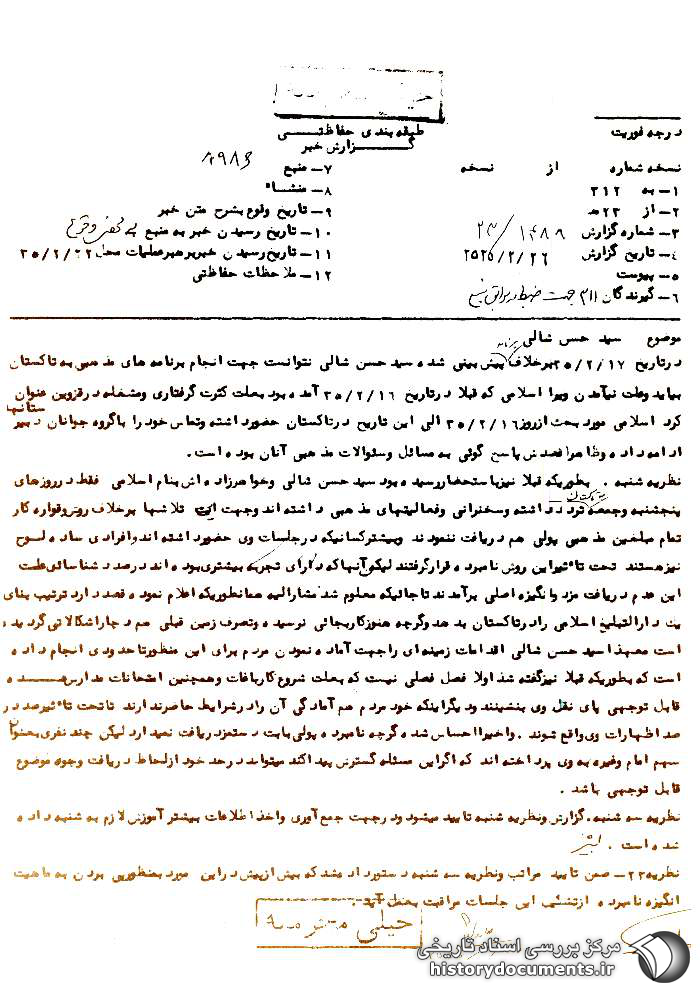 خیلی محرمانه
درجه فوریت
طبقه بندی حفاظتی
گزارش خبر
نسخه شماره از نسخه
۱- به ۳۱۲
۲- از ۲۳ هـ
۳- شماره گزارش
۴- تاریخ گزارش ۲۵۳۵/۲/۲۶
۵- پیوست
۶- گیرندگان ۳۱۱ جهت
۷- منبع
۸- منشاء
۹- تاریخ وقوع بشرح متن خبر
۱۰- تاریخ رسیدن خبر به منبع
۱۱- تاریخ رسیدن خبر برهبر عملیات محل ۳۵/۲/۲۲
۱۲- ملاحظات حفاظتی
موضوع سید حسن شالی
در تاریخ ۳۵/۲/۱۷ برخلاف برنامه پیش بینی شده سید حسن شالی نتوانست جهت انجام برنامه های مذهبی به تاکستان
بیاید و علت نیآمدن ویرا اسلامی که قبلا در تاریخ ۳۵/۲/۱۶ آمده بود بعلت کثرت گرفتاری و مشغله در قزوین عنوان
کرد اسلامی مورد بحث از روز ۳۵/۲/۱۶ الی این تاریخ در تاکستان حضور داشته و تماس خود را با گروه جوانان دبیرستانها
ادامه داده و ظاهرا قصدش پاسخ گوئی به مسائل و سئوالات مذهبی آنان بوده است.
نظریه شنبه . بطوریکه قبلا نیز باستحضار رسیده بود سید حسن شالی و خواهرزاده اش بنام اسلامی فقط در روزهای
پنجشنبه و جمعه به تاکستان تردد داشته و سخنرانی و فعالیتهای مذهبی داشته اند و جهت این تلاشها برخلاف روش و قواره کار
تمام مبلغین مذهبی پولی هم دریافت ننمودند و بیشتر کسانیکه در جلسات وی حضور داشته اند و افرادی ساده لوح
نیز هستند تحت تاثیر این روش نامبرده قرار گرفتند لیکن آنها که دارای تجربه بیشتری بوده اند درصدد شناسائی علت
این عدم دریافت مزد و انگیزه اصلی برآمدند تا جائیکه معلوم شد مشارالیه همانطوریکه اعلام نموده قصد دارد ترتیب بنای
یک دارالتبلیغ اسلامی را در تاکستان بدهد و گرچه هنوز کار بجائی نرسیده و تصرف زمین قبلی هم دچار اشکالاتی گردیده
است معهذا سید حسن شالی اقدامات زمینه ای را جهت آماده نمودن مردم برای این منظور تا حدودی انجام داده
است که بطوریکه قبلا نیز گفته شد اولا فصل فصلی نیست که بعلت شروع کار باغات و همچنین امتحانات مدارس عده
قابل توجهی پای نقل وی بنشینند و دیگر اینکه خود مردم هم آمادگی آن را در شرایط حاضر ندارند تا تحت تاثیر صد در
صد اظهارات وی واقع شوند . و اخیرا احساس شده گرچه نامبرده پولی بابت دستمزد دریافت نمیدارد لیکن چند نفری بعنوان
سهم امام و غیره به وی پرداخته اند که اگر این مسئله گسترش پیدا کند میتواند در حد خود از لحاظ دریافت وجوه موضوع
قابل توجهی باشد .
نظریه سه شنبه . گزارش و نظریه شنبه تایید میشود در جهت جمع آوری و اخذ اطلاعات بیشتر آموزش لازم به شنبه داده
شده است .
نظریه ۲۳- ضمن تایید مراتب و نظریه سه شنبه دستور داده شد که بیش از پیش در این مورد بمنظور پی بردن به ماهیت
انگیزه نامبرده از تشکیل این جلسات مراقبت بعمل آید .
خیلی محرمانه
مرکز بررسی اسناد تاریخی
historydocuments.ir